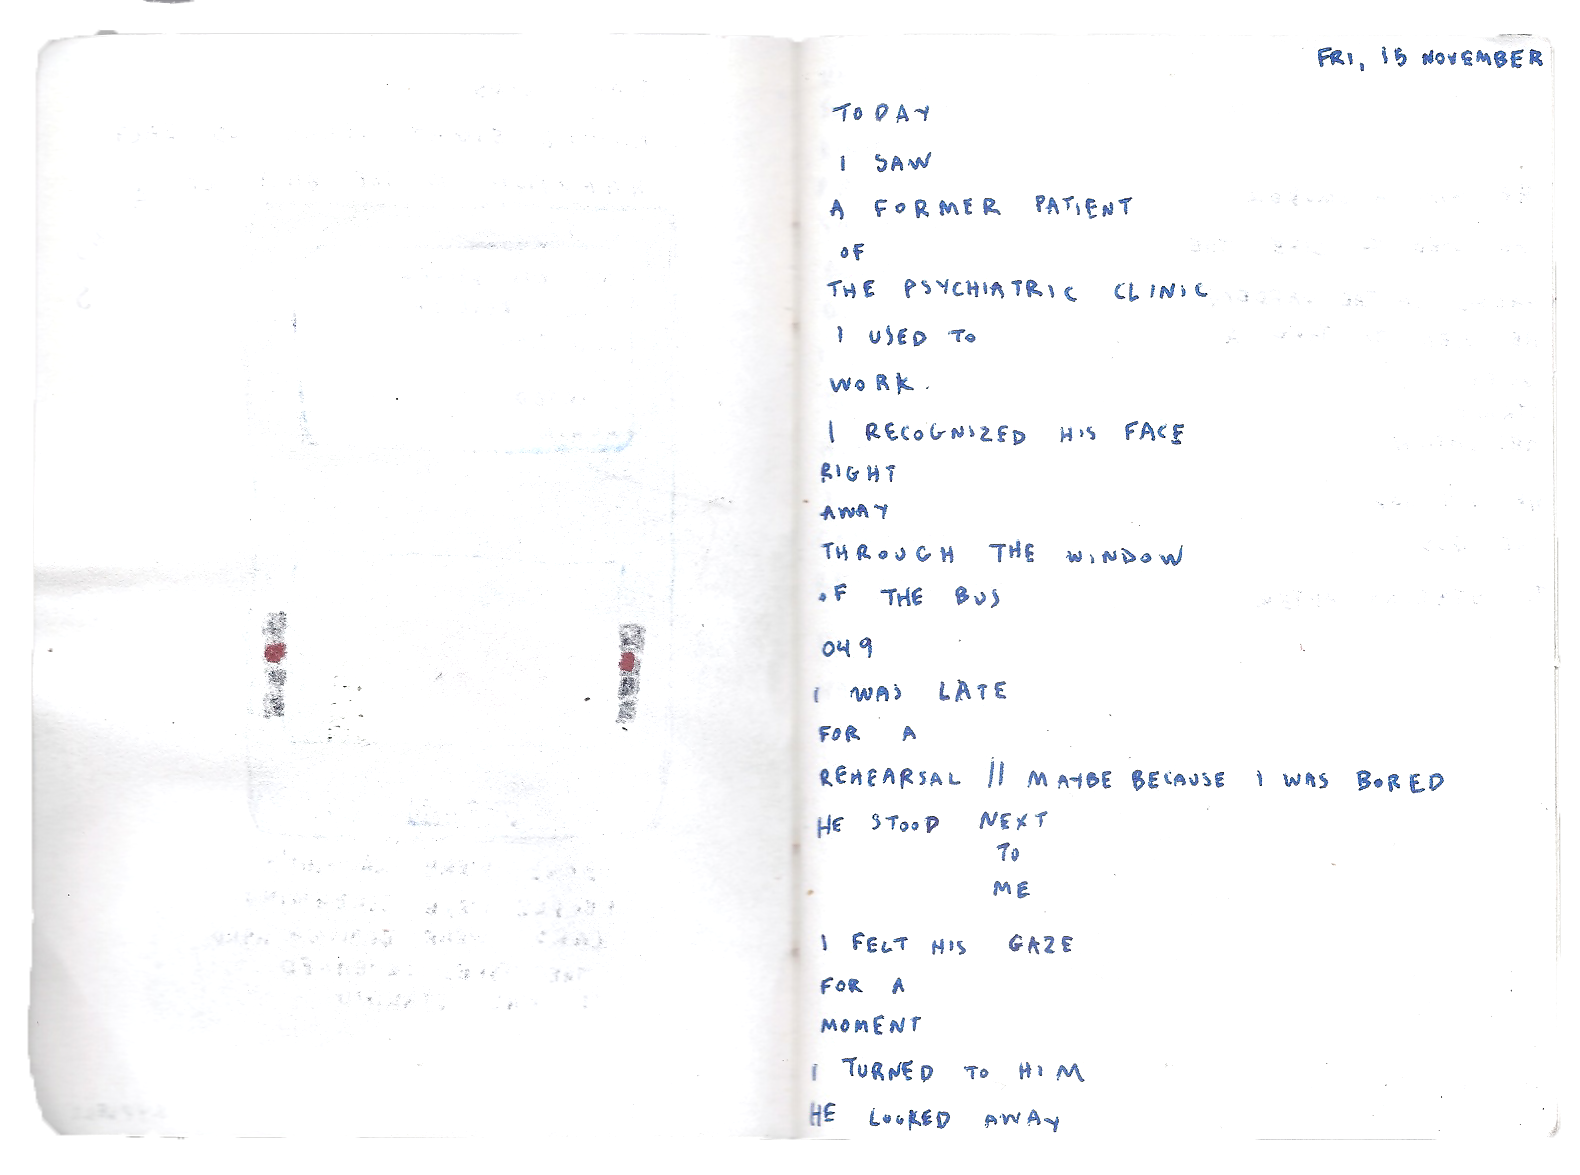 FRI, 15 NOVEMBER
TODAY
I SAW
A FORMER PATIENT
OF
THE PSYCHIATRIC CLINIC
I USED TO
WORK.
I RECOGNIZED HIS FACE
RIGHT
AWAY
THROUGH THE WINDOW
OF THE BUS
049
I WAS LATE
FOR A
REHEARSAL || MAYBE BECAUSE I WAS BORED
HE STOOD NEXT
TO
ME
I FELT HIS GAZE
FOR A
MOMENT
I TURNED TO HIM
HE LOOKED AWAY